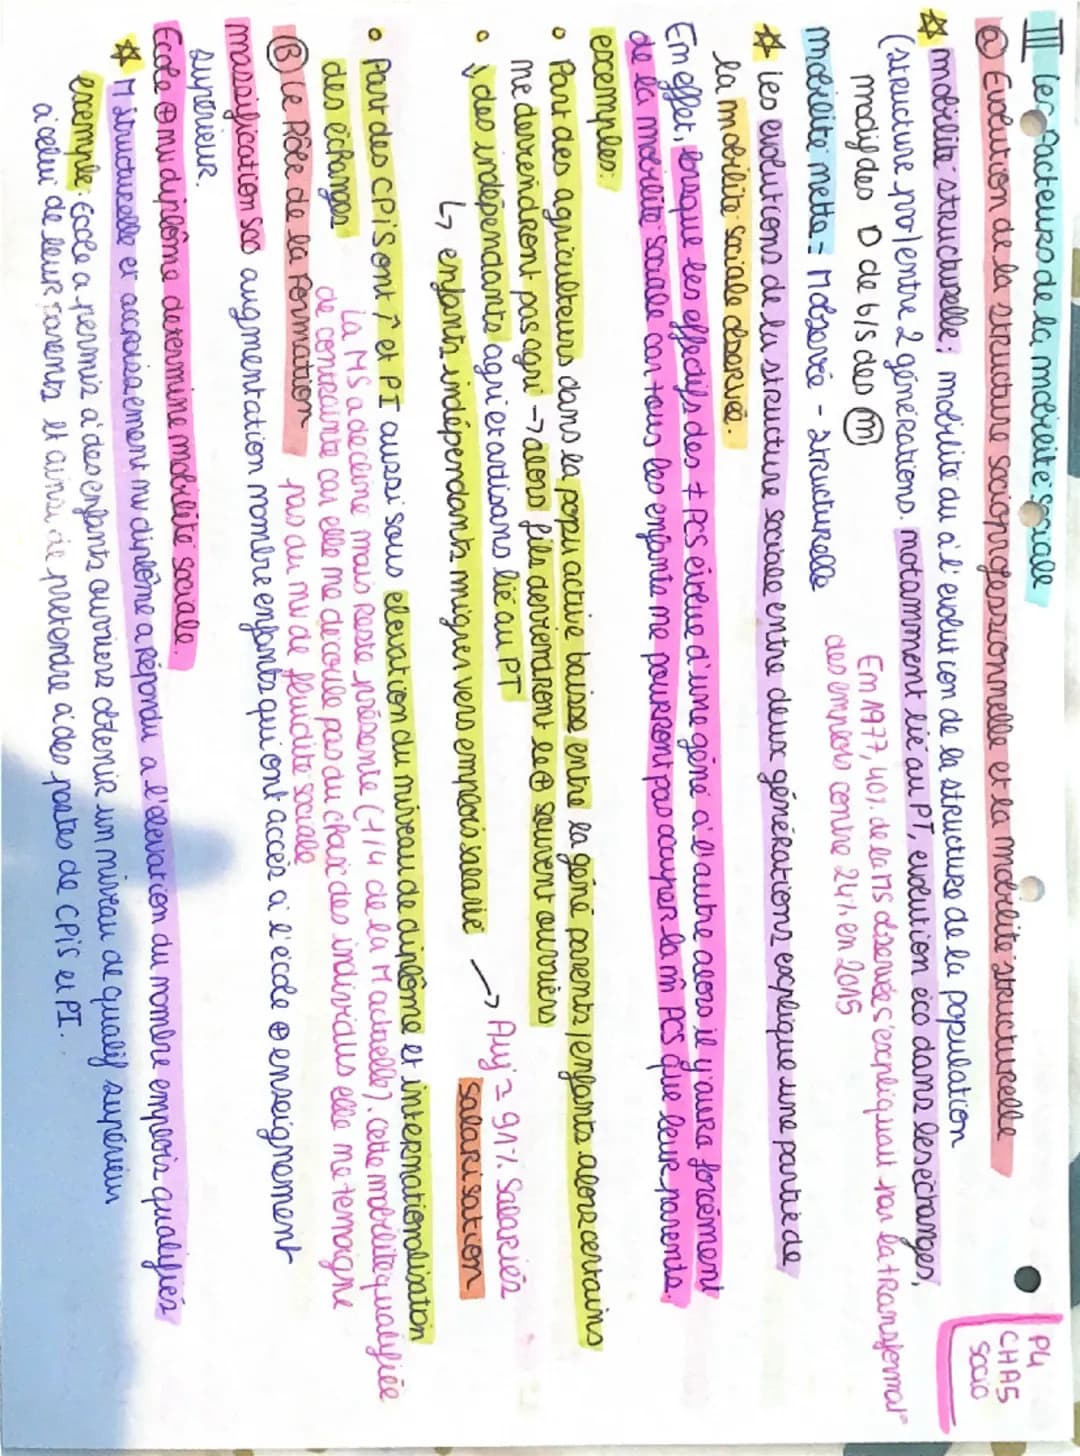 P4
CHA5
Socio
III les facteurs de la mobilité sociale
a) Evolution de la structure socioprofessionnelle et la mobilité structurelle
☆ mobilité structurelle: mobilité du à l'évolution de la structure de la population
(structure pro/entre 2 générations. notamment lié au PT, evolution éco dans les échanges,
modif des D de b/s des (m)
En 1977, 40% de la MS observée s'expliquait par la transformat°
des emplois contre 24% en 2015
mobilité nette = M observée - structurelle
☆ les evolutions de la structure sociale entre deux générations explique une partie de
la mobilité sociale observée.
En effet, lorsque les effectifs des ≠ PCS évolue d'une géné à l'autre alors il y'aura forcément
de la mobilité sociale car tous les enfants ne pourront pas occuper la m̂ PCS que leur parents.
exemples:
• Part des agriculteurs dans la popu active baisse entre la géné parents/enfants. alors certains
ne deviendront pas agri → alors fils deviendront le ⊕ souvent ouvriers
• ↓ des indépendants agri et artisans lié au PT
↳ enfants indépendants migrer vers emplois salarié → Auj = 91% salariés
salarisation
• Part des CPIS ont ↗ et PI aussi sous elevation du niveau de diplôme et internationalisation
des échanges
la MS a decliné mais reste présente (-1/4 de la M actuelle). cette mobilité qualifiée
de contrainte car elle ne découle pas du choix des individus elle ne temoigne
pas du nv de fluidité sociale
(B) le Rôle de la Formation
massification sco augmentation nombre enfants qui ont accès à l'école ⊕ enseignement
supérieur.
Ecole ⊕ nv diplôme determine mobilité sociale.
☆ M structurelle et accroissement nv diplôme a répondu a l'élevation du nombre emplois qualifiés
exemple: école a permis a des enfants ouvriers obtenir un niveau de qualif supérieur
à celui de leur parents et ainsi de pretendre a des postes de CPIS et PI.